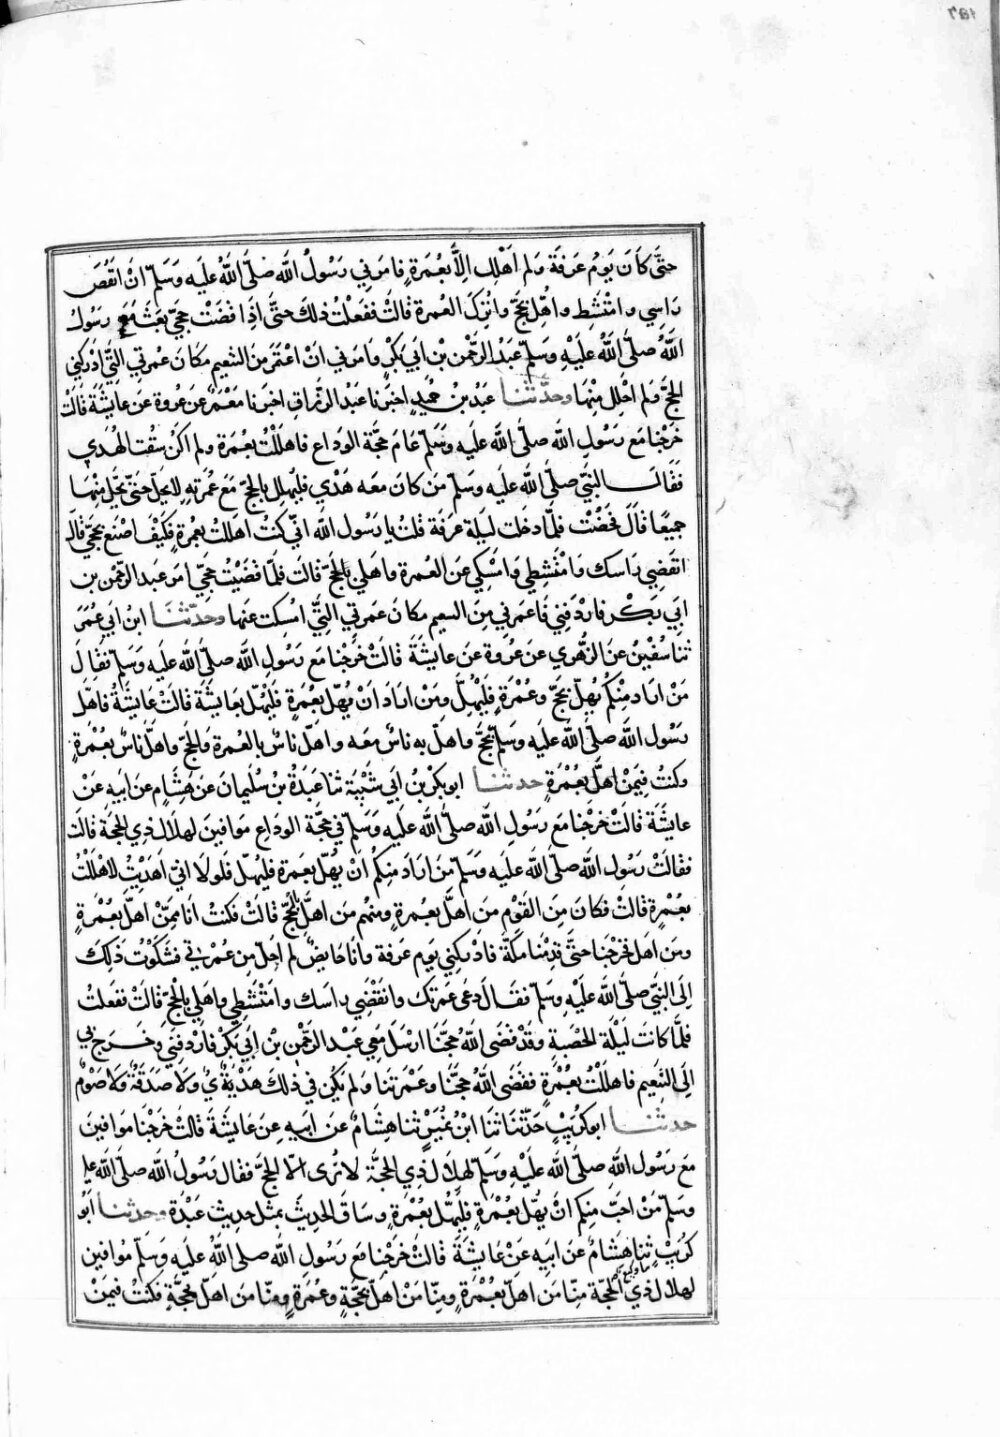 حتَّى كانَ يَومُ عَرفَة وَلم اُهلِل اِلّا بعُمرَةٍ فامَرني رَسولُ الله صَلّى اللهُ عليه وسَلم انْ انقُضَ
رَاسِي وامتشِط واُهِلّ بحَجٍّ واترُكَ العُمرة قالتْ ففعلتُ ذلكَ حتَّى اذا قضَيتُ حجِّي بعَثَ مَعِي رسُولُ
اللهِ صَلّى الله عليْهِ وسَلم عبدَ الرّحمٰن بن ابي بكْرٍ وامَرني انْ اعتمرَ منَ التنعيمِ مكانَ عُمرتي التَّي ادركني
الحجُّ وَلم احْلِل مِنْها وحدّثنا عَبدُ بنُ حُميدٍ اخبَرَنا عَبدُ الرزاقِ اخبَرنا مَعْمَر عَن عُروة عَن عايشَة قالتْ
خرجْنا مَع رَسُولِ الله صلّى الله عليه وسَلّم عَامَ حجَّة الوَداع فاهللتُ بعُمرَة ولم اكنْ سُقتُ الهَدي
فقالَ النّبيّ صلّى الله عليه وسَلّم مَن كانَ معَه هَدْي فليُهلل بالحجّ مَع عُمرَتهِ لا يحلّ حتى يحلّ مِنْهَا
جميعًا قالَ فحضْتُ فلمّا دخلَت ليلَة عرفَة قلتُ يا رَسُول الله انّي كنتُ اهللتُ بعُمرةٍ فكيفَ اصنَع بحَجّتي قالَ
انقضِي رَاسك وامْتشطِي وامْسِكي عَن العُمرة واهلّي بالحجّ قالت فلمّا قضَيْتُ حجّي امرَ عبدَ الرحمٰن بن
ابي بَكْر فاردَفني فاعمَرني مِنَ التنعيم مكانَ عمرَتي التّي امسكت عنها وحدّثنَا ابنُ ابي عُمَرَ
ثنا سُفيٰنُ عنَ الزُّهرِي عَن عُروَة عَن عايشَة قالتْ خَرجْنا مَع رَسُول اللهِ صلّى اللهُ عليه وسَلم فقالَ
مَنْ ارادَ منكم يُهِلّ بحَجّ وعُمرَةٍ فليُهِلَّ ومَنْ ارادَ انْ يُهلّ بعُمرَةٍ فليُهِلّ بعَايشَة قالتْ عَايشَةُ فاهَلّ
رَسُول الله صلّى اللهُ عليه وسَلّم بحَجٍّ واهلّ به ناسٌ معَه واهلّ ناسٌ بالعُمرة والحجّ واهلَّ ناسٌ بعُمْرةٍ
وكنتُ فيمَنْ اهلَّ بعُمْرَةٍ حدثنا ابوبَكر بنُ ابي شَيْبَة ثنا عَبدَةُ بنُ سُليمانَ عَن هِشَامٍ عن ابيه عَنْ
عايشَة قالتْ خرجْنا مَع رسُولِ الله صلّى الله عليه وَسَلم في حجّة الوداع موافينَ لهلال ذي الحجة قالت
فقالتْ رَسُول الله صلّى الله عليه وسَلّم مَن ارادَ منكُم انْ يُهلّ بعُمرة فليُهلّ فلولا انّي اهدَيتُ لاهللْتُ
بعُمرةٍ قالتْ فكانَ مِنَ القَوْم مَن اهلَّ بعمرةٍ ومنهم مَن اهلّ بالحجّ قالتْ فكنتُ انا ممَّنْ اهلّ بعُمْرةٍ
ومَن اهل فخرَجْنا حتَّى قدِمْنا مكّة فادركني يَوم عَرفة وانا حَايضٌ لم احِلّ مِن عُمْرتي فشكَوْتُ ذلكَ
الى النّبيّ صلّى الله عليْهِ وسَلّم فقالَ دَعي عمرتك وانقضِي راسَك وامْتشطي واهلي بالحجّ قالتْ ففعلتُ
فلمّا كانت ليْلَة الحَصبَة وقدْ قضَى اللهُ حجّتَنَا ارسَلَ مَعي عبْدَ الرّحمٰن بن ابي بَكْر فاردفنِي وَخَرَج بي
الى التنعيم فاهللتُ بعُمْرةٍ فقضَى اللهُ حجَّنا وعمْرتنا ولم يكن في ذلكَ هَدْيٌ ولا صَدقَةٌ ولا صَوْمٌ
حدثنا ابوكرَيبٍ حَدّثنا ثنا ابْنُ نُمَيْرٍ ثنا هِشامٌ عنَ ابيه عن عايشَة قالتْ خرَجْنا موافينَ
مَع رسُولِ الله صلّى الله عليْهِ وَسَلّم لهلال ذي الحجّة لا نُرى الّا الحجَّ فقال رَسُولُ الله صَلّى الله عليه
وسَلّم مَنْ احبّ منكم انْ يُهلّ بعُمْرةٍ فليُهلّ بعُمْرَةٍ وسَاقَ الحديثَ بمثل حديثِ عَبْدَة وحدثنا ابُو
كرَيبٍ ثنا هشامٌ عن ابيه عَنْ عَايشَة قالتْ خرجْنا مَع رَسُولِ الله صلى اللهُ عليه وسَلّم مُوافين
لهلال ذي الحجّة منّا مَن اهلّ بعُمْرةٍ ومنّا مَنْ اهلّ بحجَّةٍ وعُمرَةٍ ومنّا مَن اهلّ بحجّةٍ فكنتُ فيمَنْ